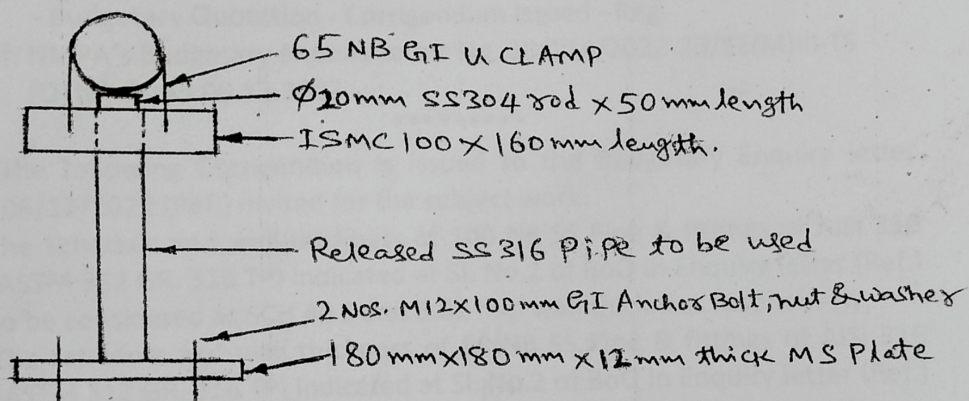 65 NB GI U CLAMP
Ø20mm SS304 rod x 50mm length
ISMC 100 x 160mm length.
Released SS316 Pipe to be used
2 Nos. M12x100mm GI Anchor Bolt, nut & washer
180mmx180mm x 12mm thick MS Plate